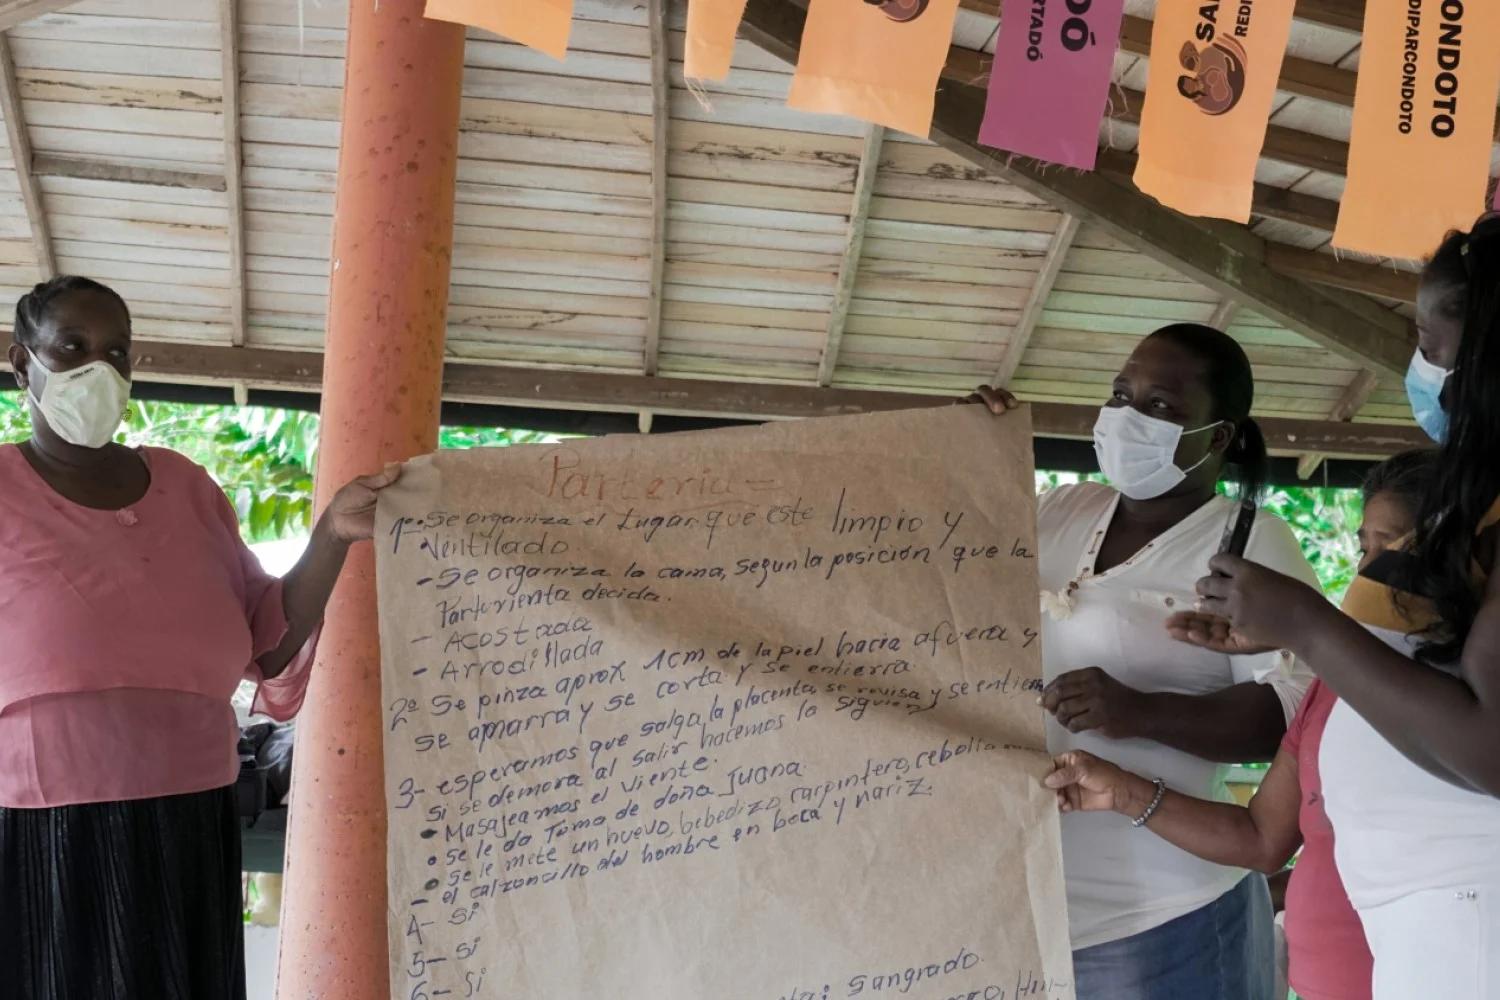 SAN
REDI
CONDOTO
REDIPARCONDOTO
DÓ
RTADÓ
Parteria =
1º • Se organiza el Lugar que este limpio y
• Ventilado.
- Se organiza la cama, segun la posición que la
Parturienta decida.
- Acostada
- Arrodillada
2º Se pinza aprox 1cm de la piel hacia afuera y
se amarra y se corta y se entierra.
3- esperamos que salga, la placenta, se revisa y se entierra
Si se demora al salir hacemos lo siguien
• Masajeamos el viente.
• Se le da Toma de doña Juana.
• Se le mete un huevo, bebedizo, carpintero, cebolla
- el calzoncillo del hombre en boca y nariz.
4- Si
5- Si
6- Si
Sangrado.